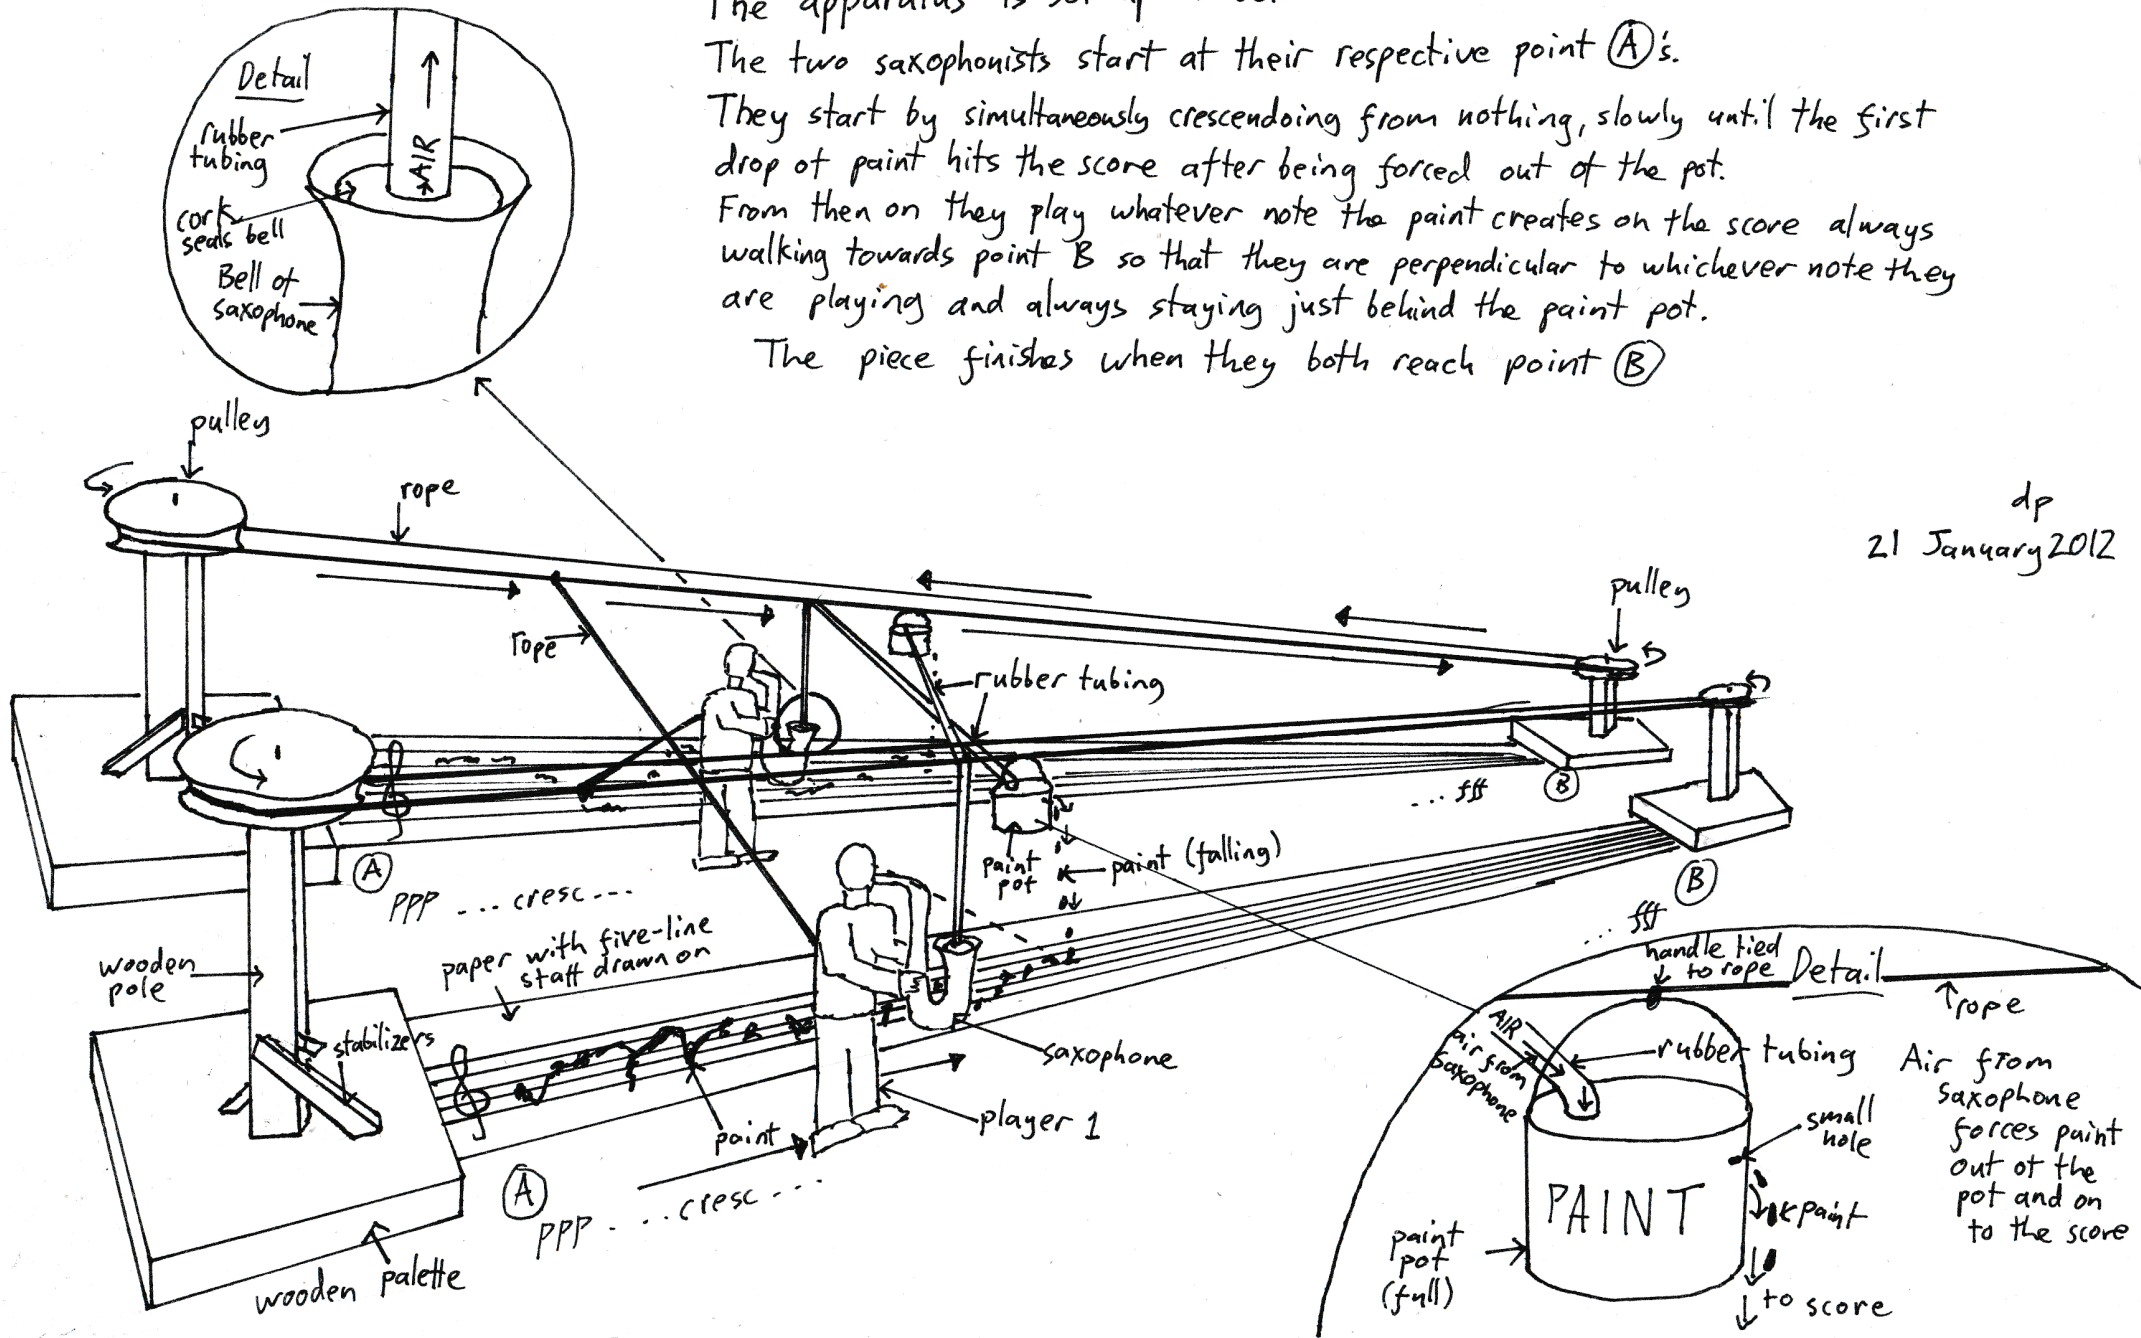 The apparatus is set up
The two saxophonists start at their respective point Ⓐ's.
They start by simultaneously crescendoing from nothing, slowly until the first
drop of paint hits the score after being forced out of the pot.
From then on they play whatever note the paint creates on the score always
walking towards point B so that they are perpendicular to whichever note they
are playing and always staying just behind the paint pot.
The piece finishes when they both reach point Ⓑ
Detail
rubber
tubing
AIR
cork
seals bell
Bell of
saxophone
pulley
rope
dp
21 January 2012
pulley
rope
rubber tubing
Ⓐ
ppp ... cresc ...
... fff
Ⓑ
paint
pot
paint (falling)
Ⓑ
... fff
paper with five-line
staff drawn on
wooden
pole
stabilizers
saxophone
player 1
paint
Ⓐ
ppp .... cresc ...
wooden palette
handle tied
to rope
Detail
rope
AIR
air from
saxophone
rubber tubing
small
hole
PAINT
paint
paint
pot
(full)
to score
Air from
saxophone
forces paint
out of the
pot and on
to the score